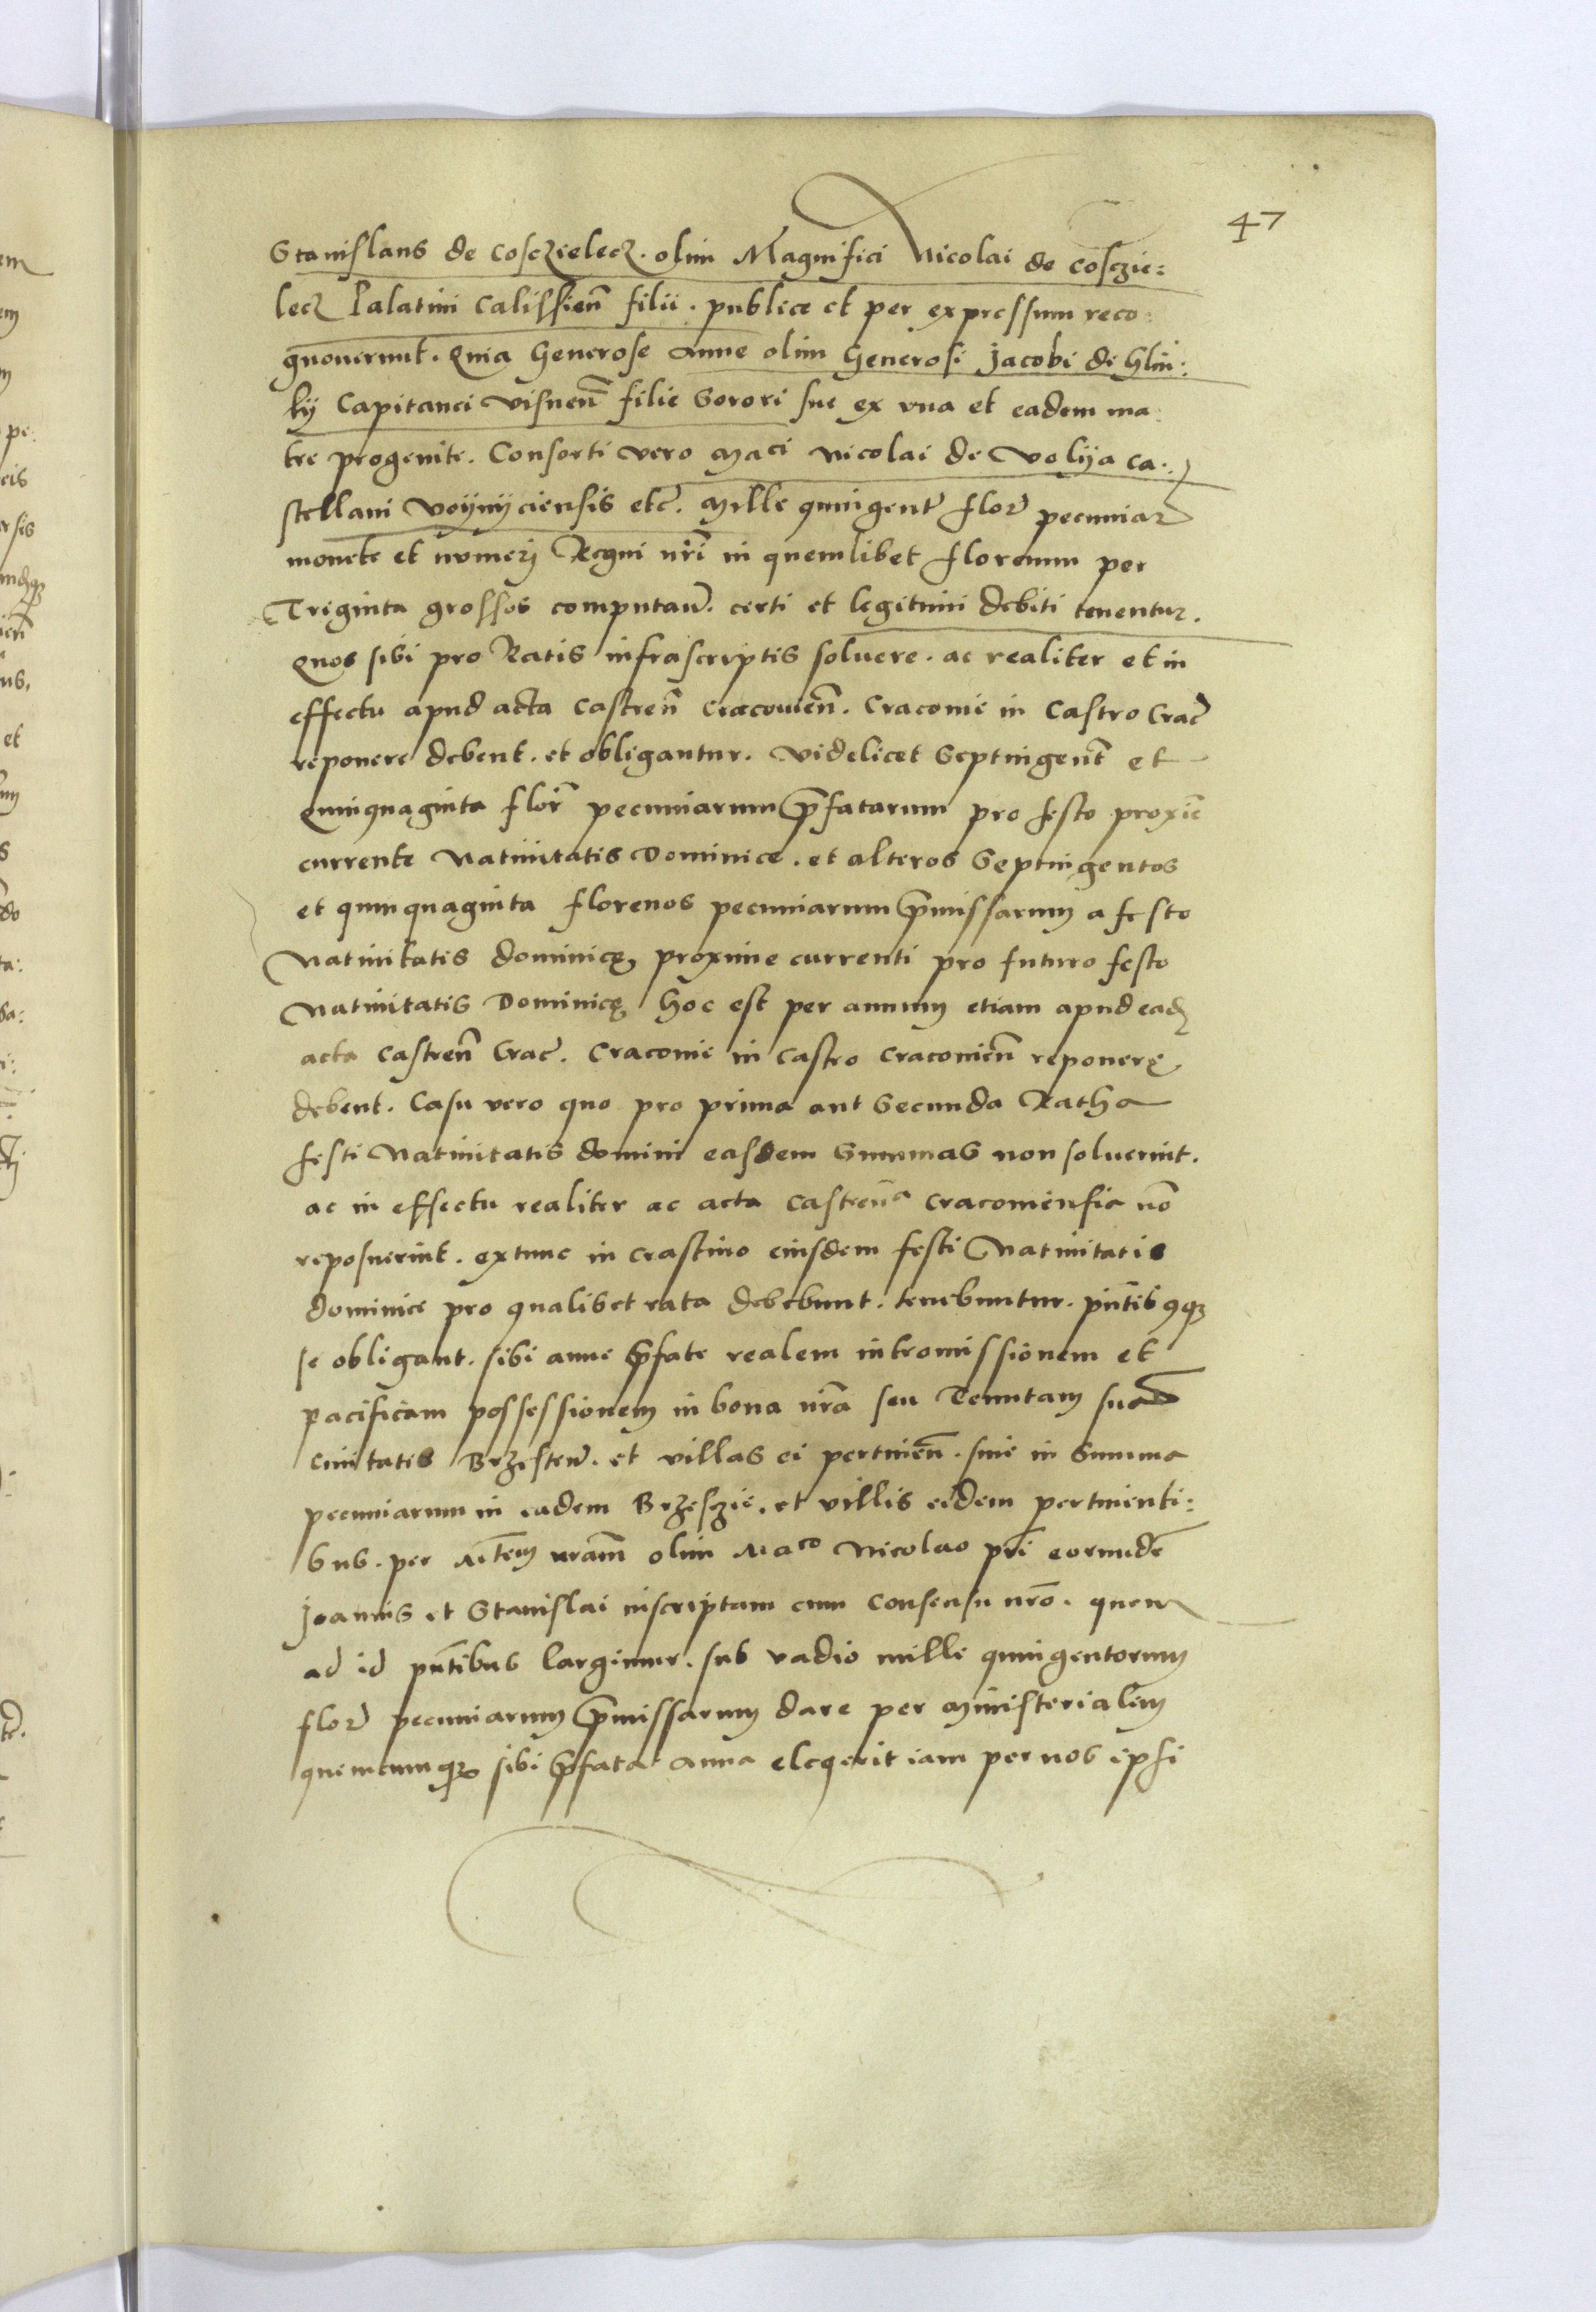 47
Stanislaus de Cosczielecz. olim Magnifici Nicolai de Cosczie:
lecz Palatini Calissien̄ filii. publice et per expressum reco:
gnouerunt. Quia Generose Anne olim Generosi Jacobi de Glin:
ky Capitanei Visnen̄ filie Sorori sue ex vna et eadem ma:
tre progenite. Consorti vero Maci Nicolai de Volya Ca:
stellani Voynyciensis etc. Mille quingent flor pecuniar
monete et numeri Regni nri in quemlibet florenum per
Triginta grossos computan. certi et legitimi debiti tenentur.
Quos sibi pro Ratis infrascriptis soluere. ac realiter et in
effectu apud acta Castren̄ Cracouien̄. Cracouie in Castro Crac
reponere debent. et obligantur. Videlicet Septingent et
Quinquaginta flor pecuniarum p̄fatarum pro festo proxie
currente Natiuitatis Dominice. et alteros Septingentos
et quinquaginta florenos pecuniarum p̄missarum a festo
Natiuitatis dominicę proxime currenti pro futuro festo
Natiuitatis Dominicę hoc est per annum etiam apud ead
acta Castren̄ Crac. Cracouie in Castro Cracouien̄ reponerę
debent. Casu vero quo pro prima aut Secunda Ratha
festi Natiuitatis domini easdem Summas non soluerint.
ac in effectu realiter ac acta Castren̄a Cracouiensia nō
reposuerint. extunc in crastino eiusdem festi Natiuitatis
dominice pro qualibet rata debebunt. tenebuntur. pn̄tibusq3
se obligant. sibi anne p̄fate realem intromissionem et
pacificam possessionem in bona nr̄a seu Tenutam suam
Ciuitatis Brzesten. et villas ei pertinen̄. siue in Summa
pecuniarum in eadem Brzesczie. et villis eidem pertinenti:
bus. per Mtem nram olim Maco Nicolao pri eorumde
Joannis et Stanislai inscriptam cum consensu nro. quem
ad id pn̄tibus largimur. sub vadio mille quingentorum
flor pecuniarum p̄missarum dare per ministerialem
quemcumq3 sibi p̄fata anna elegerit iam per nos ipsi